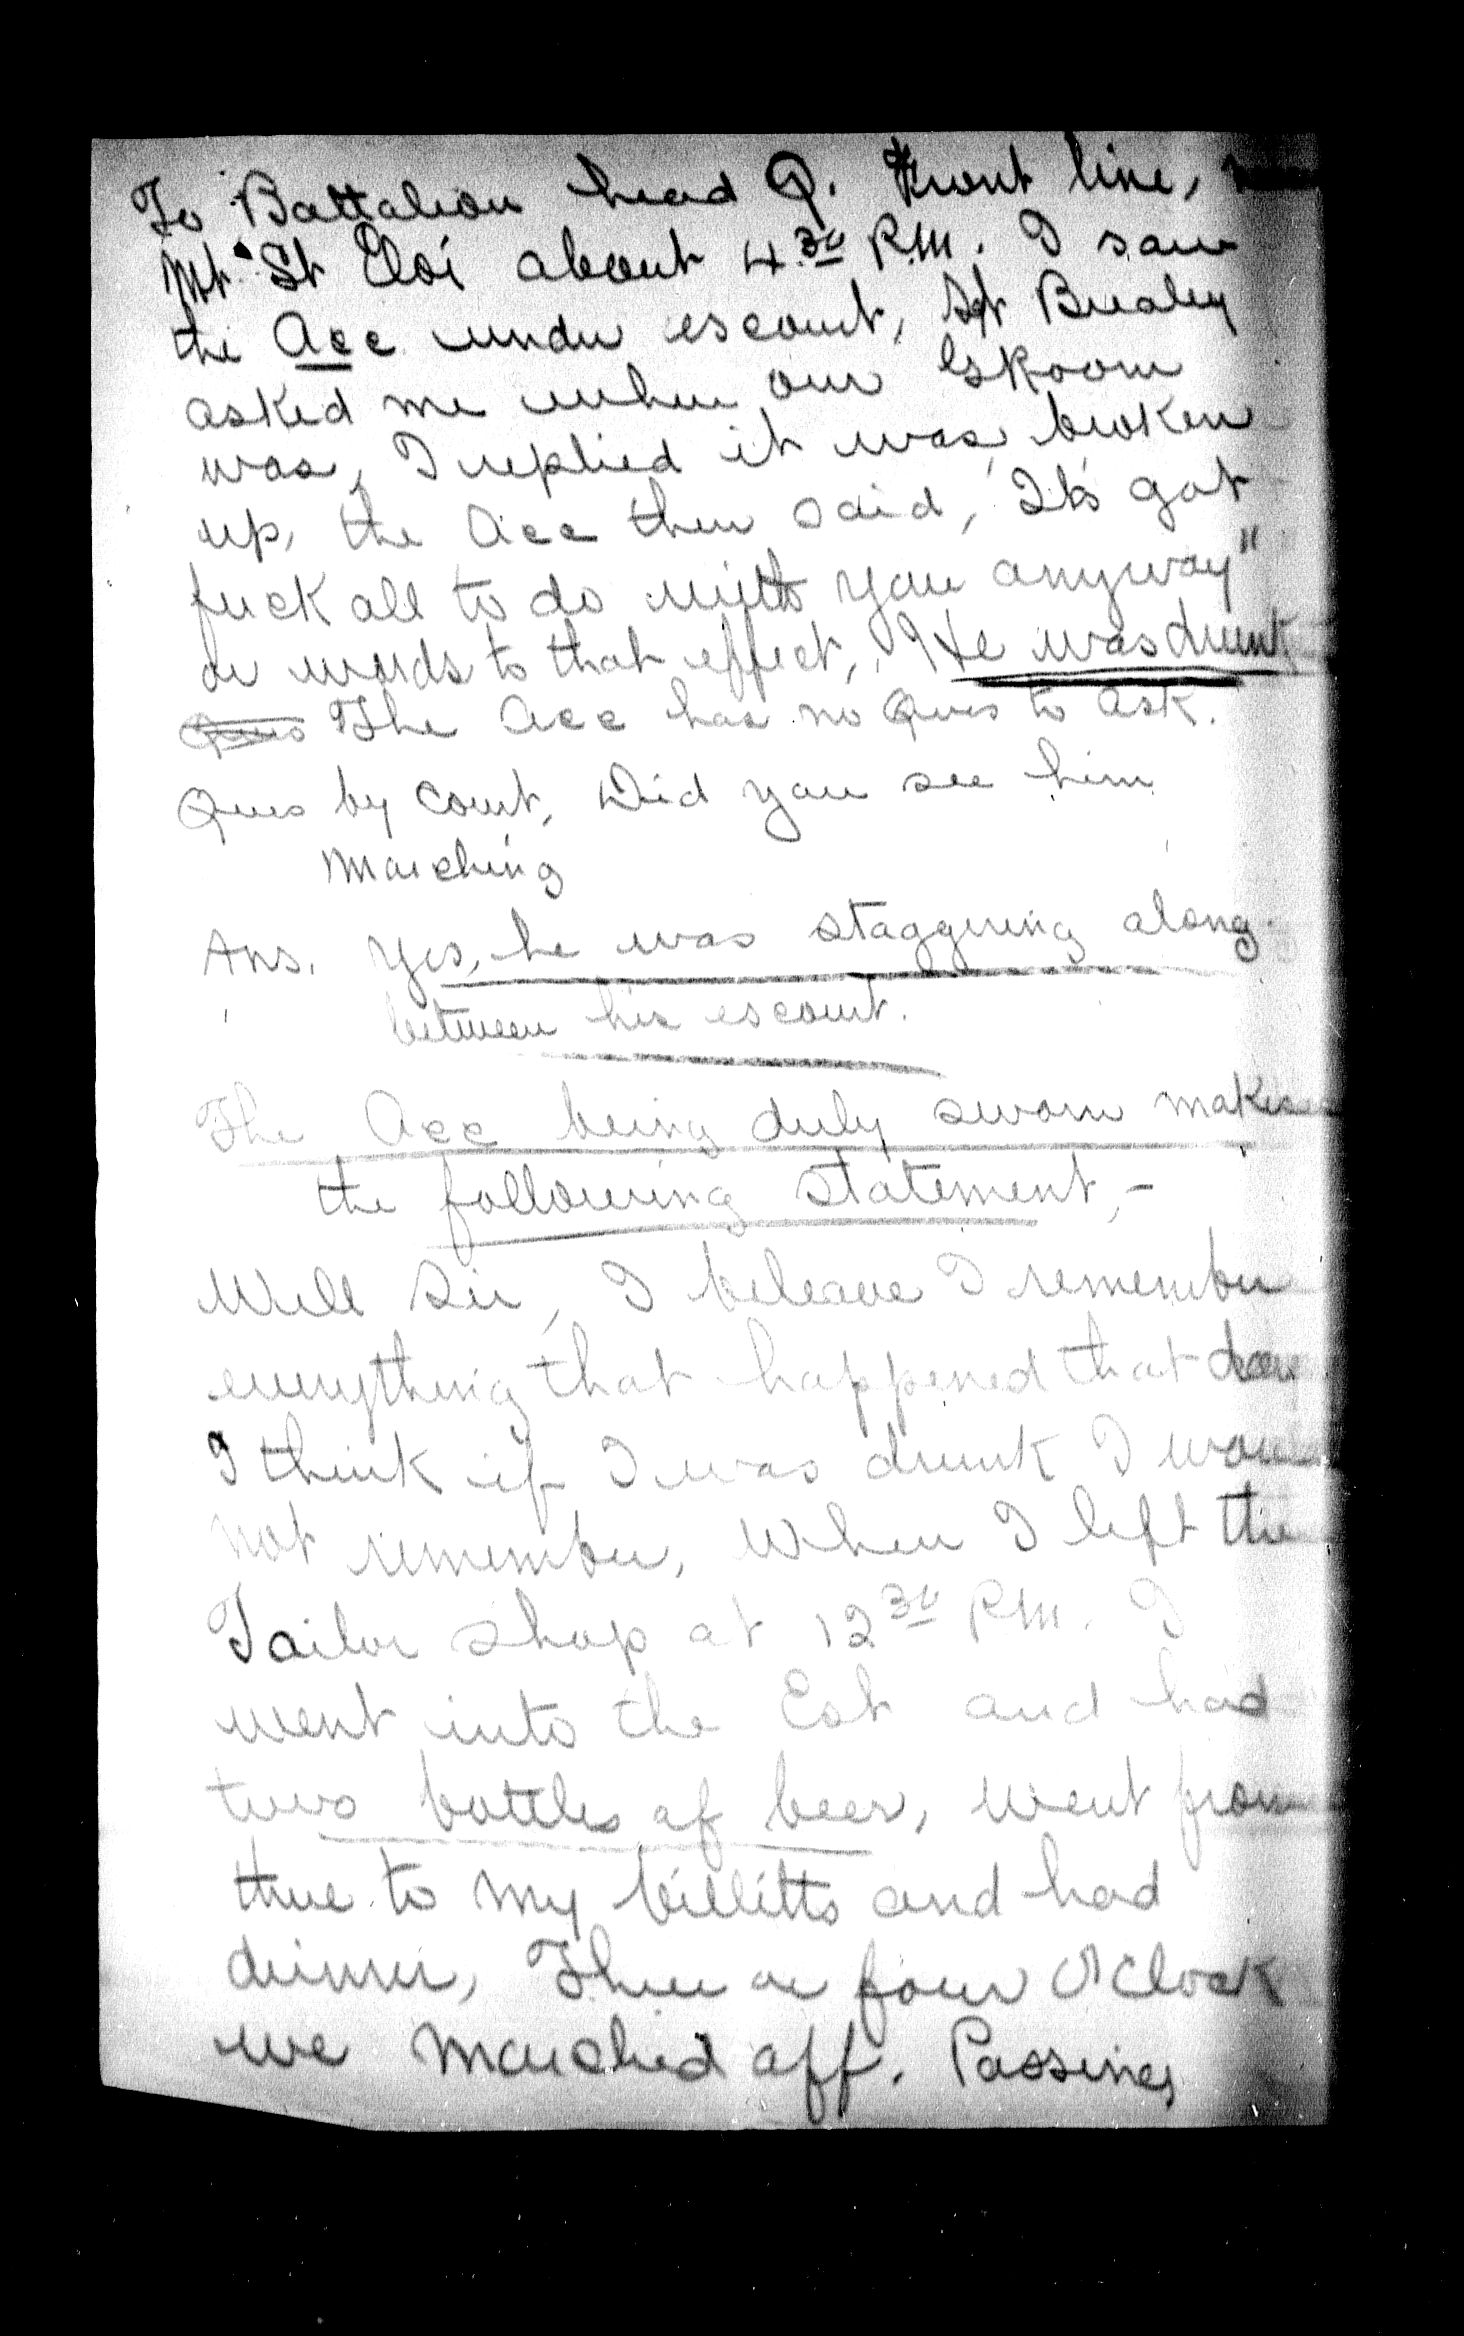 To Battalion head Q. Front line,
Mt St Eloi about 4.30 P.M. I saw
the Acc under escourt, Sgt
asked me where our GRoom
was, I replied it was broken
up, the Acc then said, "Its got
fuck all to do with you anyway"
or words to that effect, He was drunk
Ques The Acc has no Ques to ask.
Ques by Court, Did you see him
Marching
Ans. Yes, he was staggering along
between his escourt.
The Acc being duly sworn makes
the following statement,-
Well Sir, I beleave I remember
everything that happened that day
I think if I was drunk I would
not remember, When I left the
Tailor shop at 12 30 P.M. I
went into the Est and had
two bottles of beer, Went from
there to my billitts and had
dinner, Three or four O'Clock
we Marched off. Passing